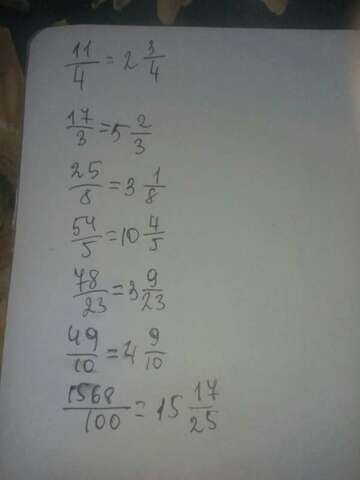 11/4 = 2 3/4
17/3 = 5 2/3
25/8 = 3 1/8
54/5 = 10 4/5
78/23 = 3 9/23
49/10 = 4 9/10
1568/100 = 15 17/25